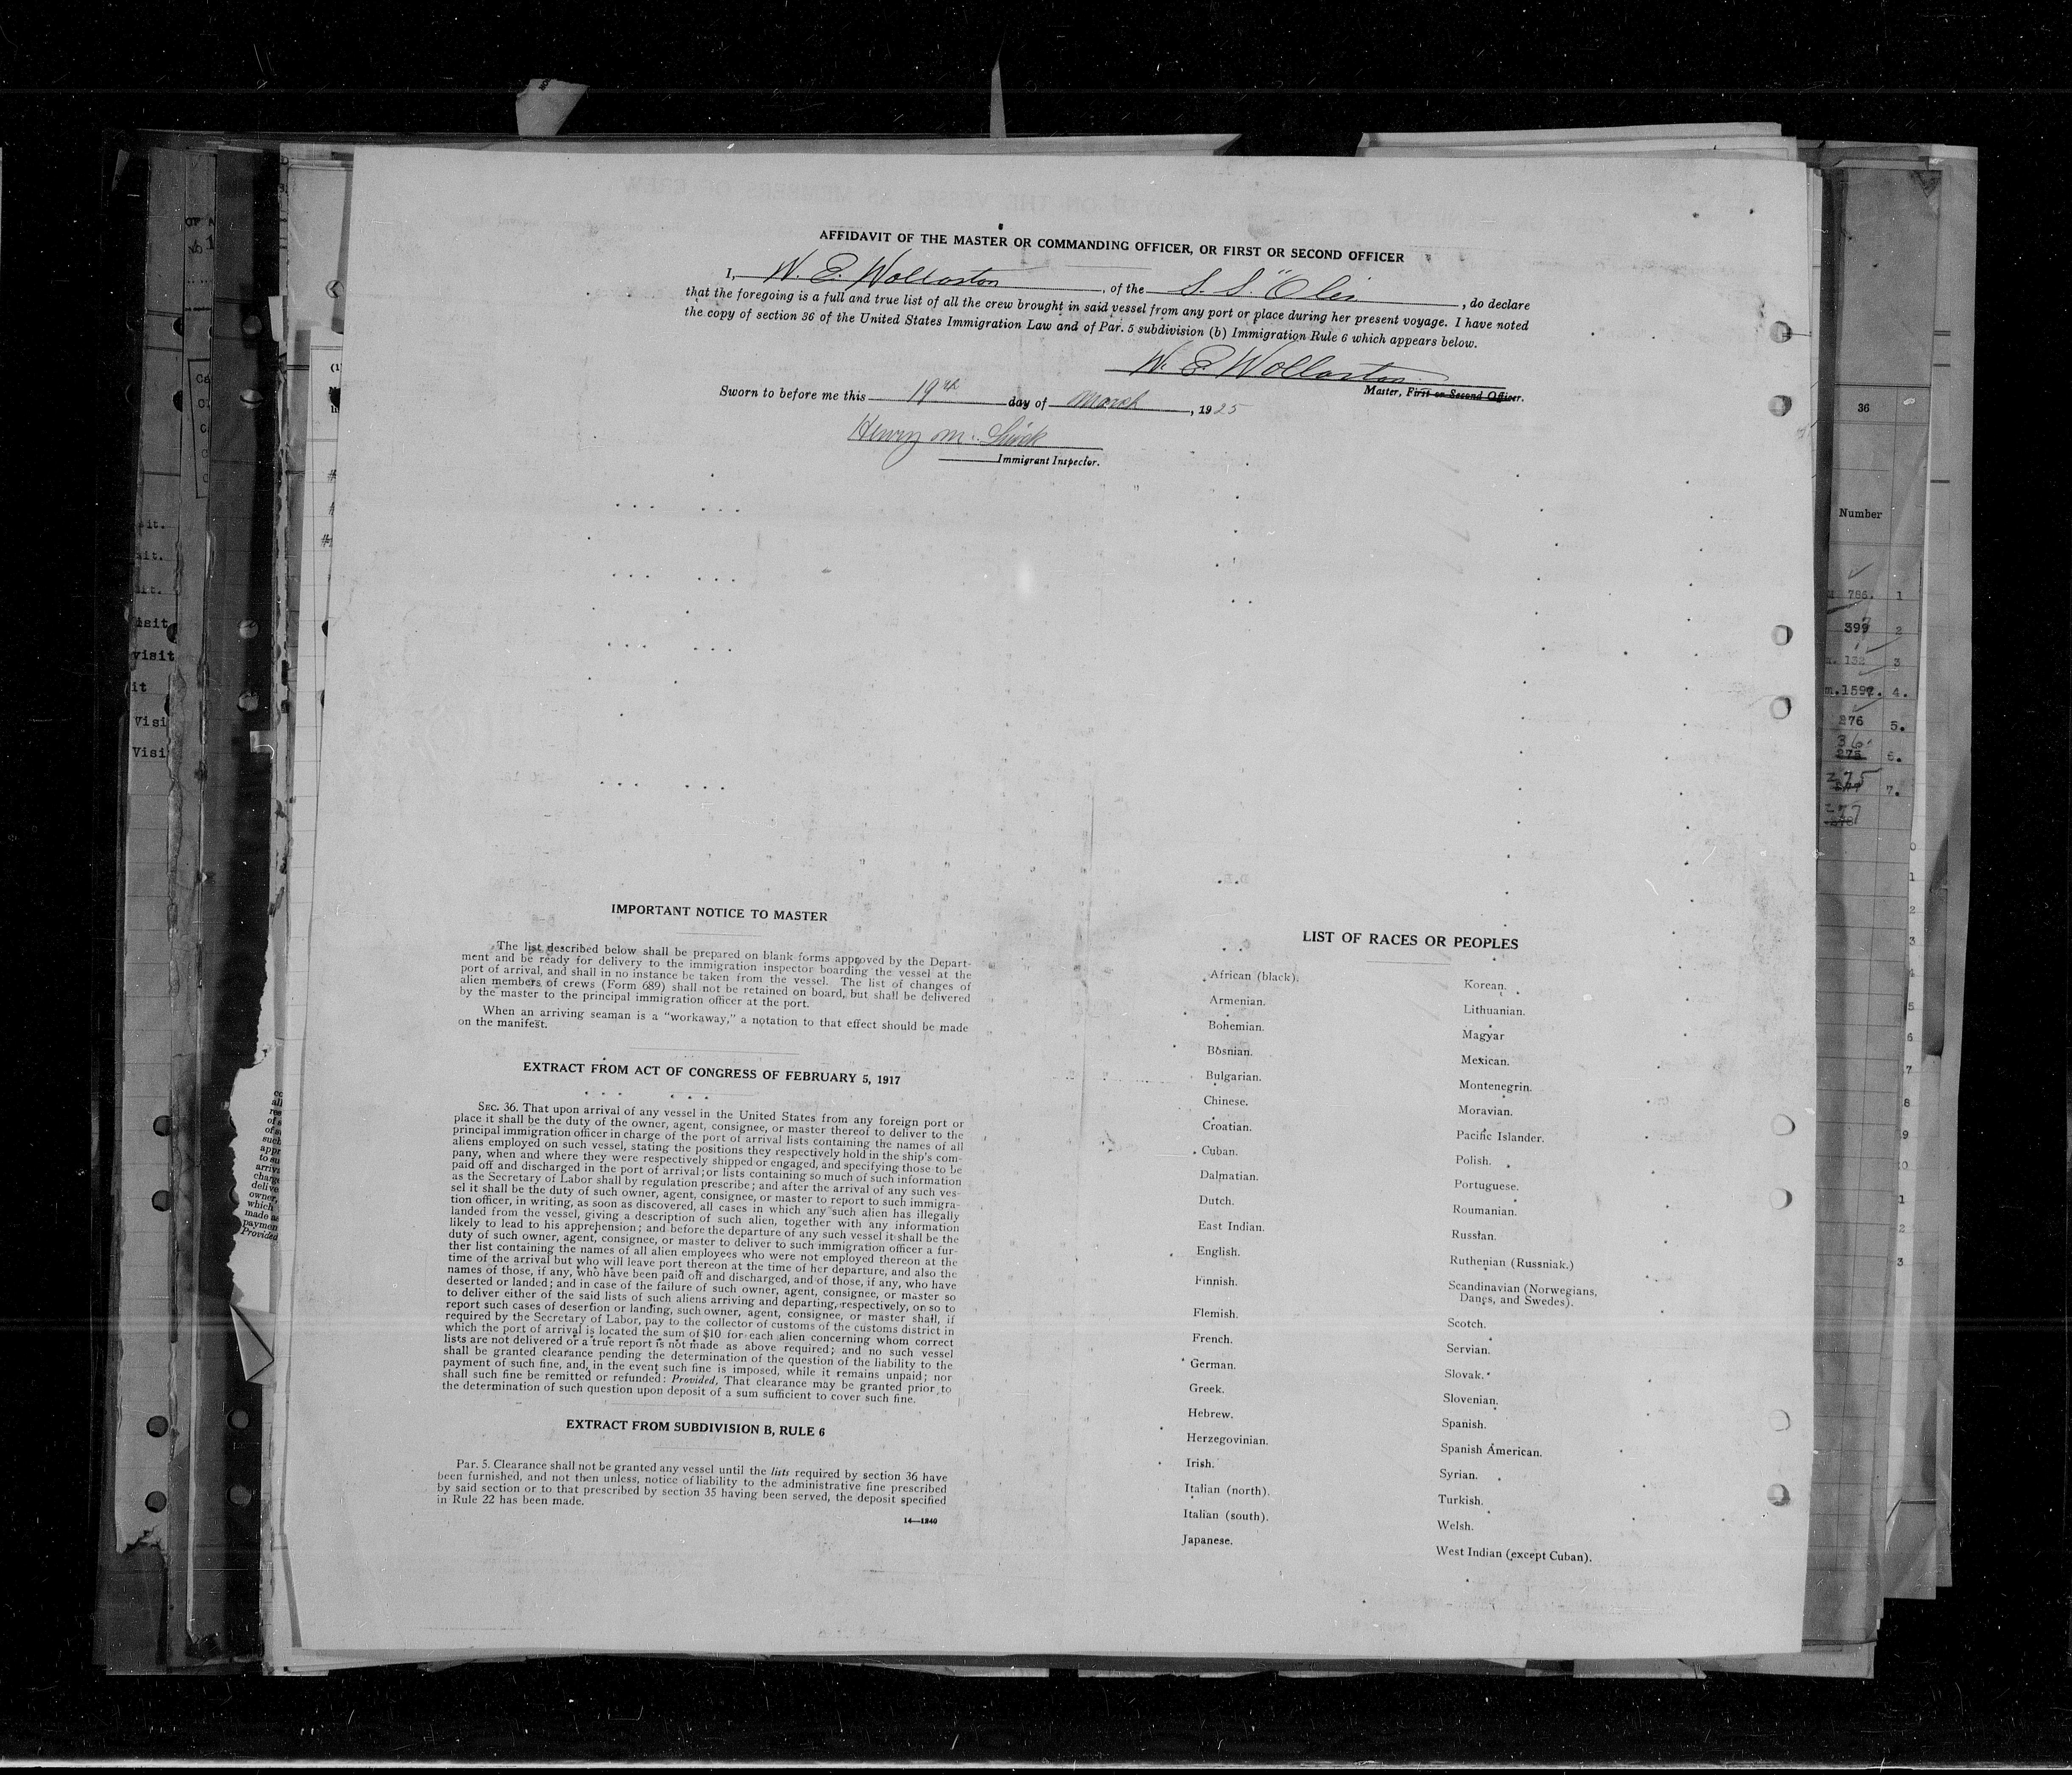 AFFIDAVIT OF THE MASTER OR COMMANDING OFFICER, OR FIRST OR SECOND OFFICER
I, W. E. Wollaston, of the S. S. "Olen, do declare
that the foregoing is a full and true list of all the crew brought in said vessel from any port or place during her present voyage. I have noted
the copy of section 36 of the United States Immigration Law and of Par. 5 subdivision (b) Immigration Rule 6 which appears below.
W. E. Wollaston
Master, First or Second Officer.
Sworn to before me this 19th day of March, 1925
Henry M.
Immigrant Inspector.
IMPORTANT NOTICE TO MASTER
The list described below shall be prepared on blank forms approved by the Depart-
ment and be ready for delivery to the immigration inspector boarding the vessel at the
port of arrival, and shall in no instance be taken from the vessel. The list of changes of
alien members of crews (Form 689) shall not be retained on board, but shall be delivered
by the master to the principal immigration officer at the port.
When an arriving seaman is a "workaway," a notation to that effect should be made
on the manifest.
EXTRACT FROM ACT OF CONGRESS OF FEBRUARY 5, 1917
SEC. 36. That upon arrival of any vessel in the United States from any foreign port or
place it shall be the duty of the owner, agent, consignee, or master thereof to deliver to the
principal immigration officer in charge of the port of arrival lists containing the names of all
aliens employed on such vessel, stating the positions they respectively hold in the ship's com-
pany, when and where they were respectively shipped or engaged, and specifying those to be
paid off and discharged in the port of arrival; or lists containing so much of such information
as the Secretary of Labor shall by regulation prescribe; and after the arrival of any such ves-
sel it shall be the duty of such owner, agent, consignee, or master to report to such immigra-
tion officer, in writing, as soon as discovered, all cases in which any such alien has illegally
landed from the vessel, giving a description of such alien, together with any information
likely to lead to his apprehension; and before the departure of any such vessel it shall be the
duty of such owner, agent, consignee, or master to deliver to such immigration officer a fur-
ther list containing the names of all alien employees who were not employed thereon at the
time of the arrival but who will leave port thereon at the time of her departure, and also the
names of those, if any, who have been paid off and discharged, and of those, if any, who have
deserted or landed; and in case of the failure of such owner, agent, consignee, or master so
to deliver either of the said lists of such aliens arriving and departing, respectively, or so to
report such cases of desertion or landing, such owner, agent, consignee, or master shall, if
required by the Secretary of Labor, pay to the collector of customs of the customs district in
which the port of arrival is located the sum of $10 for each alien concerning whom correct
lists are not delivered or a true report is not made as above required; and no such vessel
shall be granted clearance pending the determination of the question of the liability to the
payment of such fine, and, in the event such fine is imposed, while it remains unpaid; nor
shall such fine be remitted or refunded: Provided, That clearance may be granted prior to
the determination of such question upon deposit of a sum sufficient to cover such fine.
EXTRACT FROM SUBDIVISION B, RULE 6
Par. 5. Clearance shall not be granted any vessel until the lists required by section 36 have
been furnished, and not then unless, notice of liability to the administrative fine prescribed
by said section or to that prescribed by section 35 having been served, the deposit specified
in Rule 22 has been made.
14—1240
LIST OF RACES OR PEOPLES
African (black).
Armenian.
Bohemian.
Bosnian.
Bulgarian.
Chinese.
Croatian.
Cuban.
Dalmatian.
Dutch.
East Indian.
English.
Finnish.
Flemish.
French.
German.
Greek.
Hebrew.
Herzegovinian.
Irish.
Italian (north).
Italian (south).
Japanese.
Korean.
Lithuanian.
Magyar
Mexican.
Montenegrin.
Moravian.
Pacific Islander.
Polish.
Portuguese.
Roumanian.
Russian.
Ruthenian (Russniak.)
Scandinavian (Norwegians,
Danes, and Swedes).
Scotch.
Servian.
Slovak.
Slovenian.
Spanish.
Spanish American.
Syrian.
Turkish.
Welsh.
West Indian (except Cuban).
36
Number
786. 1
399 2
132 3
m.1592. 4.
276 5.
36 6.
275 7.
277